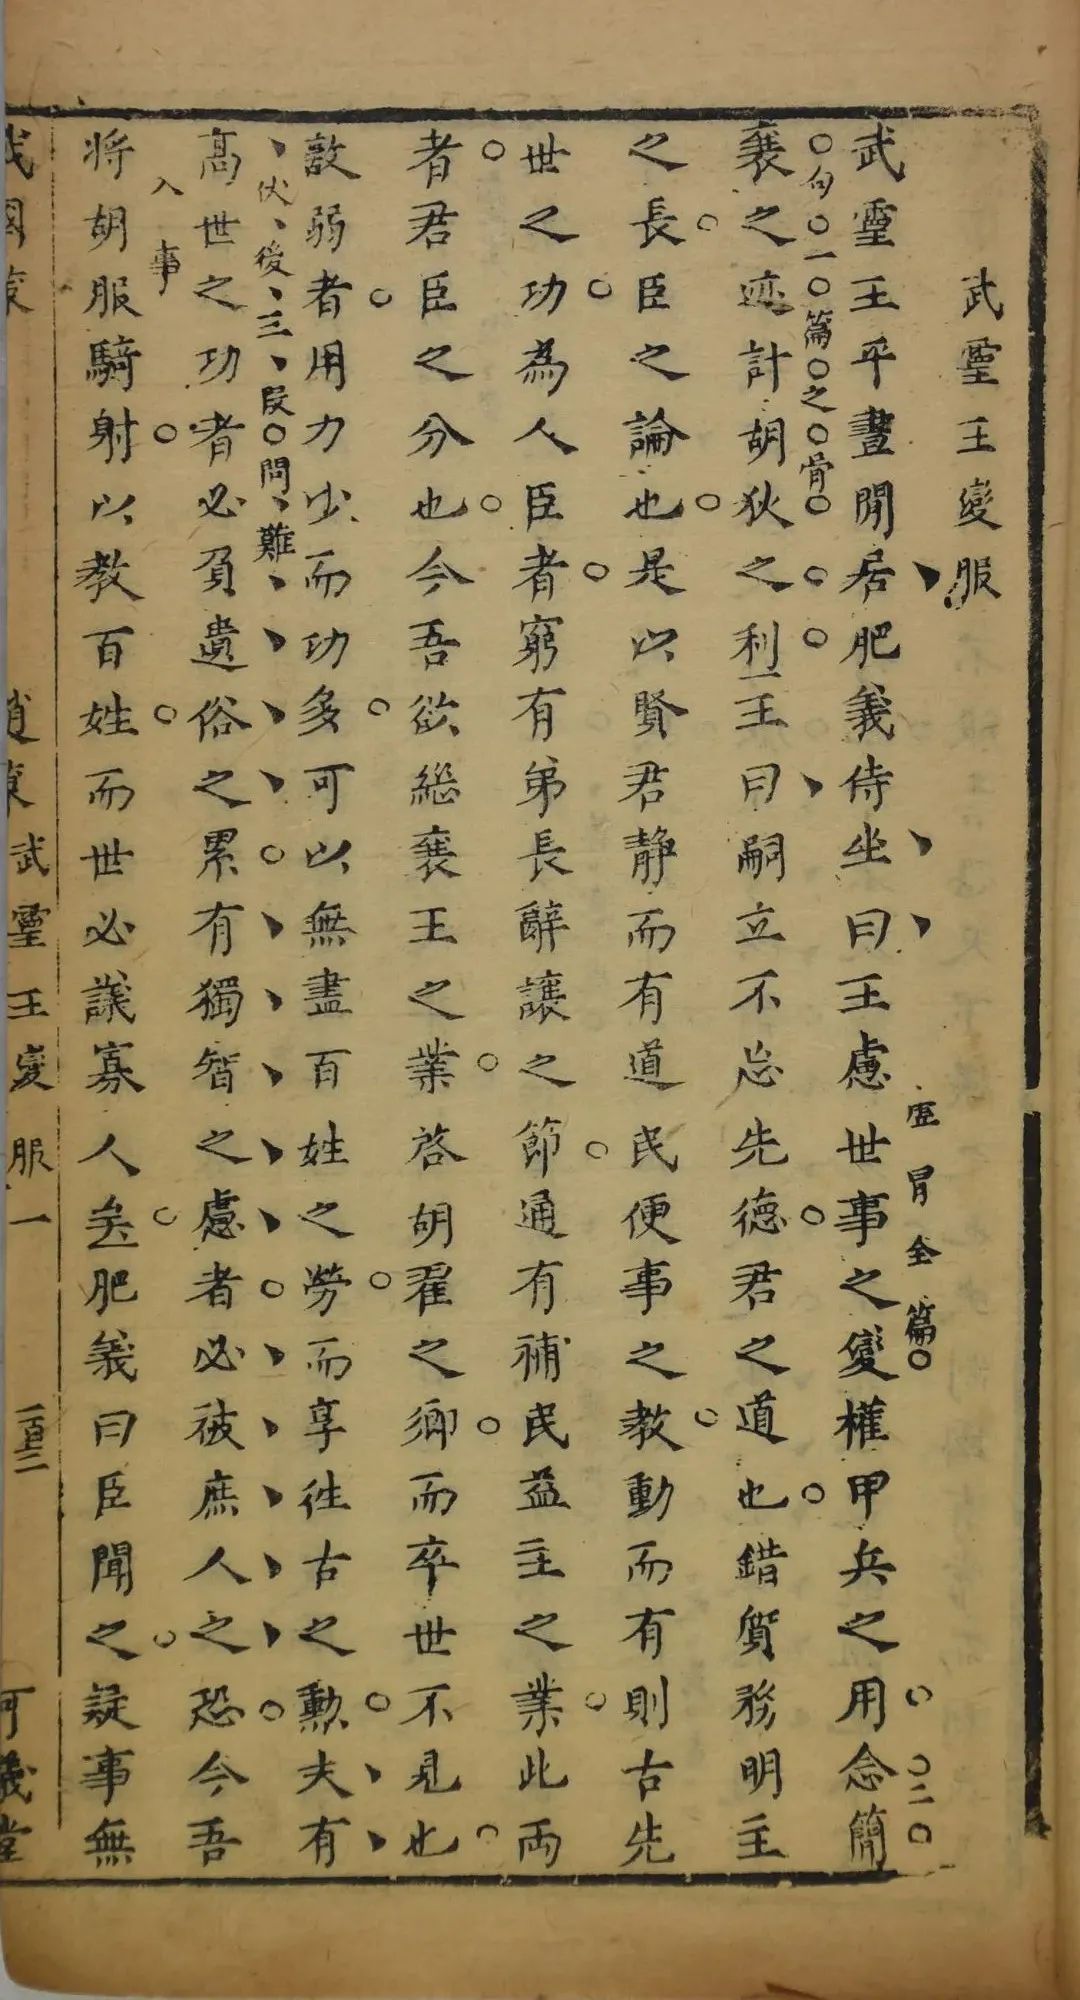 武靈王變服
武靈王平晝閒居肥義侍坐曰王慮世事之變權甲兵之用念簡
冒全篇
二句一篇之骨
襄之迹計胡狄之利王曰嗣立不忘先德君之道也錯質務明主
之長臣之論也是以賢君静而有道民便事之教動而有則古先
世之功為人臣者窮有弟長辭讓之節通有補民益主之業此両
者君臣之分也今吾欲継襄王之業啓胡翟之鄉而卒世不見也
敵弱者用力少而功多可以無盡百姓之勞而享徃古之勲夫有
伏後三段問難
高世之功者必負遺俗之累有獨智之慮者必被庶人之恐今吾
入事
将胡服騎射以教百姓而世必議寡人矣肥義曰臣聞之疑事無
戰國策
趙策
武靈王變服
一
可儀堂